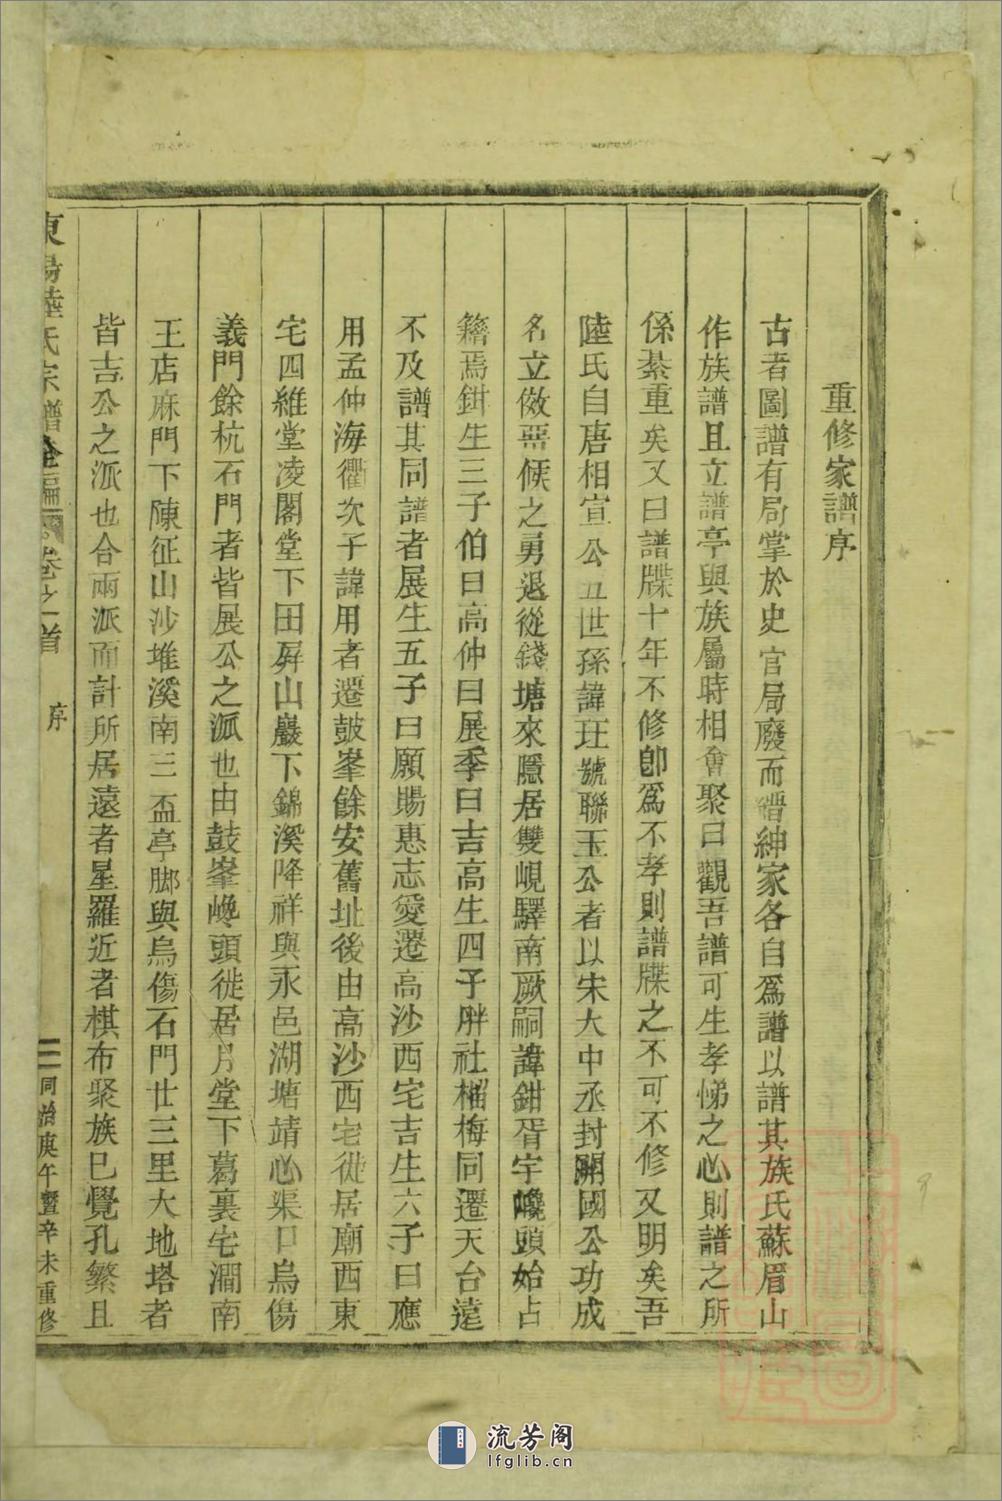 重修家譜序
古者圖譜有局掌於史官局廢而縉紳家各自爲譜以譜其族氏蘇眉山
作族譜且立譜亭與族屬時相會聚曰觀吾譜可生孝悌之心則譜之所
係綦重矣又曰譜牒十年不修卽爲不孝則譜牒之不可不修又明矣吾
陸氏自唐相宣公五世孫諱玨號聯玉公者以宋大中丞封開國公功成
名立傲惡候之勇退從錢塘來隱居雙峴驛南厥嗣諱鉗胥宇巉頭始占
籍焉鉗生三子伯曰高仲曰展季曰吉高生四子胖社榴梅同遷天台遠
不及譜其同譜者展生五子曰願賜惠志愛遷高沙西宅吉生六子曰應
用孟仲海衢次子諱用者遷鼓峯餘安舊址後由高沙西宅徙居廟西東
宅四維堂凌閣堂下田屏山巖下錦溪降祥與永邑湖塘靖心渠口烏傷
義門餘杭石門者皆展公之派也由鼓峯巉頭徙居月堂下葛裏宅澗南
王店麻門下陳征山沙堆溪南三盃亭脚與烏傷石門廿三里大地塔者
皆吉公之派也合兩派而計所居遠者星羅近者棋布聚族已覺孔繁且
東陽陸氏宗譜全編 卷之首 序 二 同治庚午暨辛未重修
流芳阁
lfglib.cn